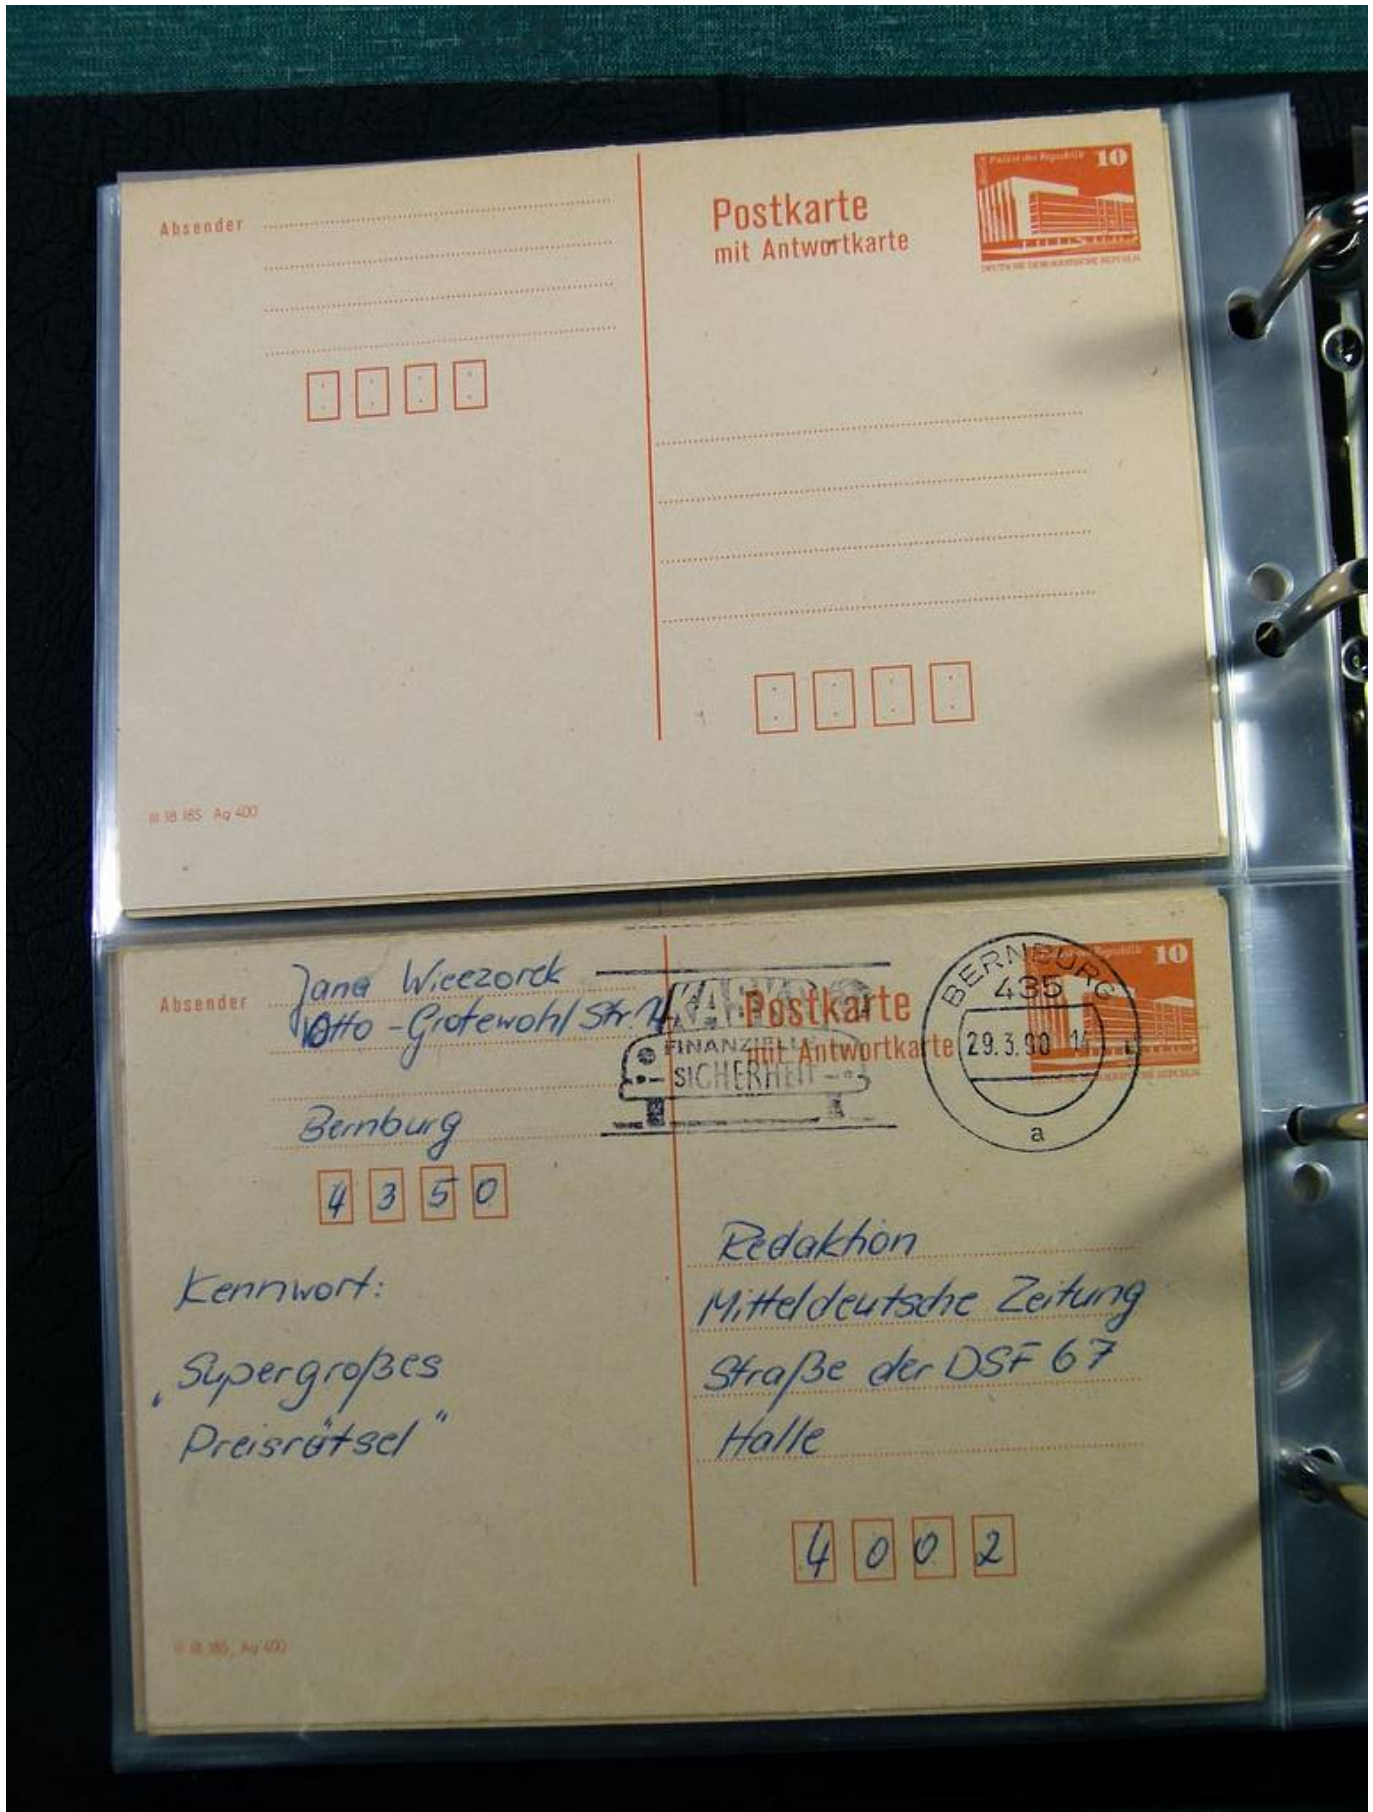 Absender
Postkarte
mit Antwortkarte
Palast der Republik 10
DEUTSCHE DEMOKRATISCHE REPUBLIK
III 18 185 Ag 400
Absender
Jana Wieczorek
Otto-Grotewohl Str.
Bernburg
4350
Kennwort:
„Supergroßes
Preisrätsel"
KASKO
FINANZIELLE
SICHERHEIT
Postkarte
mit Antwortkarte
BERNBURG
435
29.3.90
a
Republik 10
Redaktion
Mitteldeutsche Zeitung
Straße der DSF 67
Halle
4002
III 18 185 Ag 400